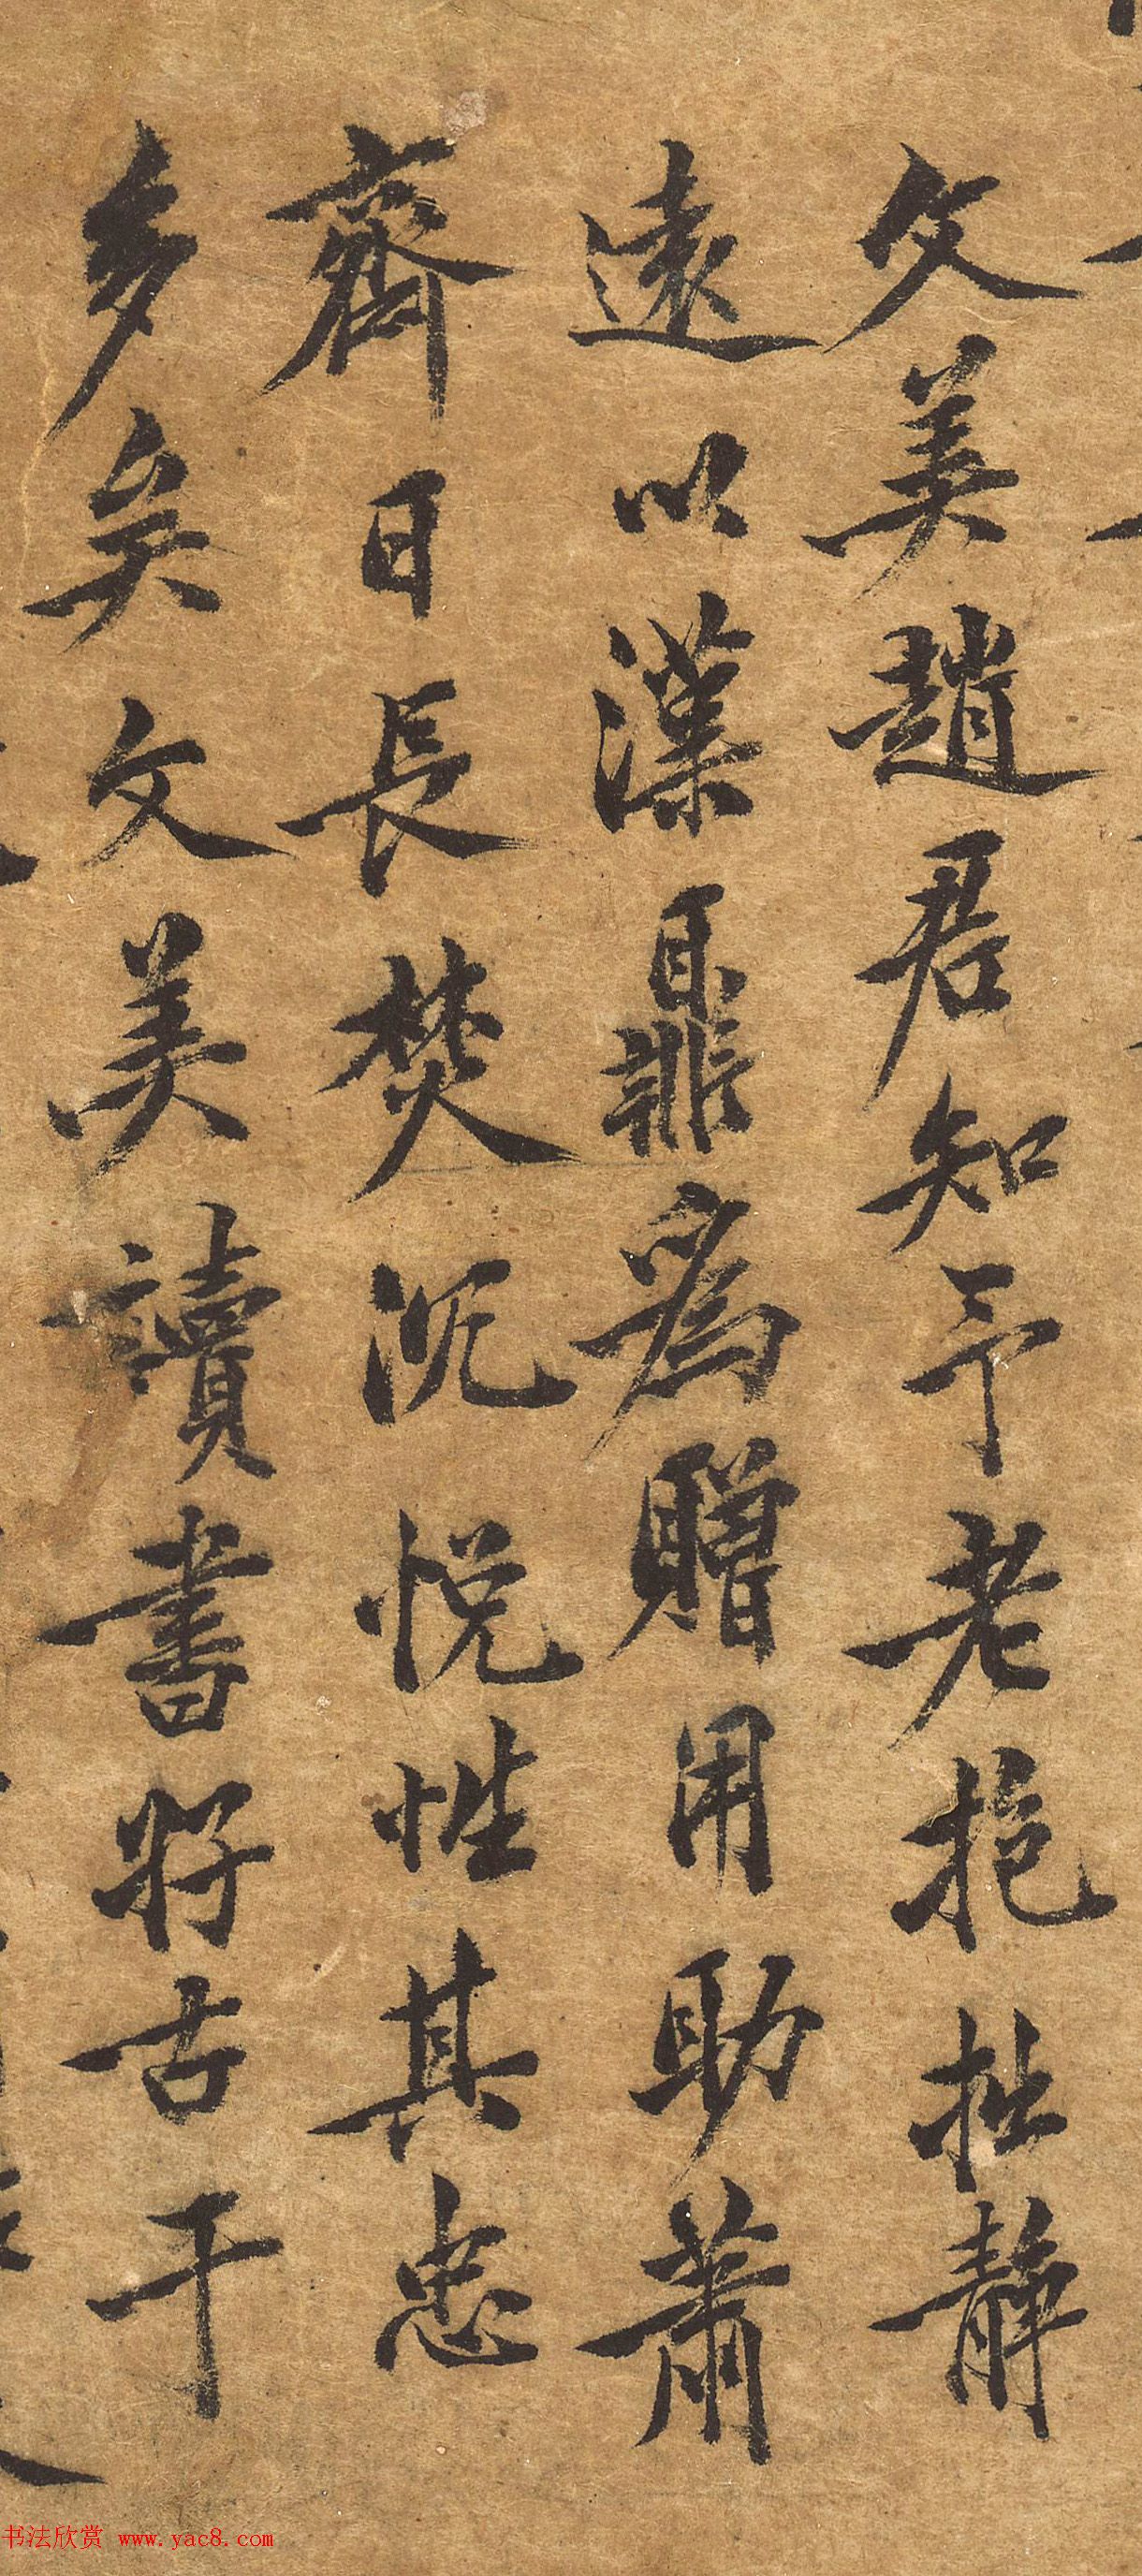 文美趙君知予老抱拙靜
遠以漢鼎為贈用助蕭
齋日長焚沉悅性其忠
多矣文美讀書好古干
书法欣赏 www.yac8.com